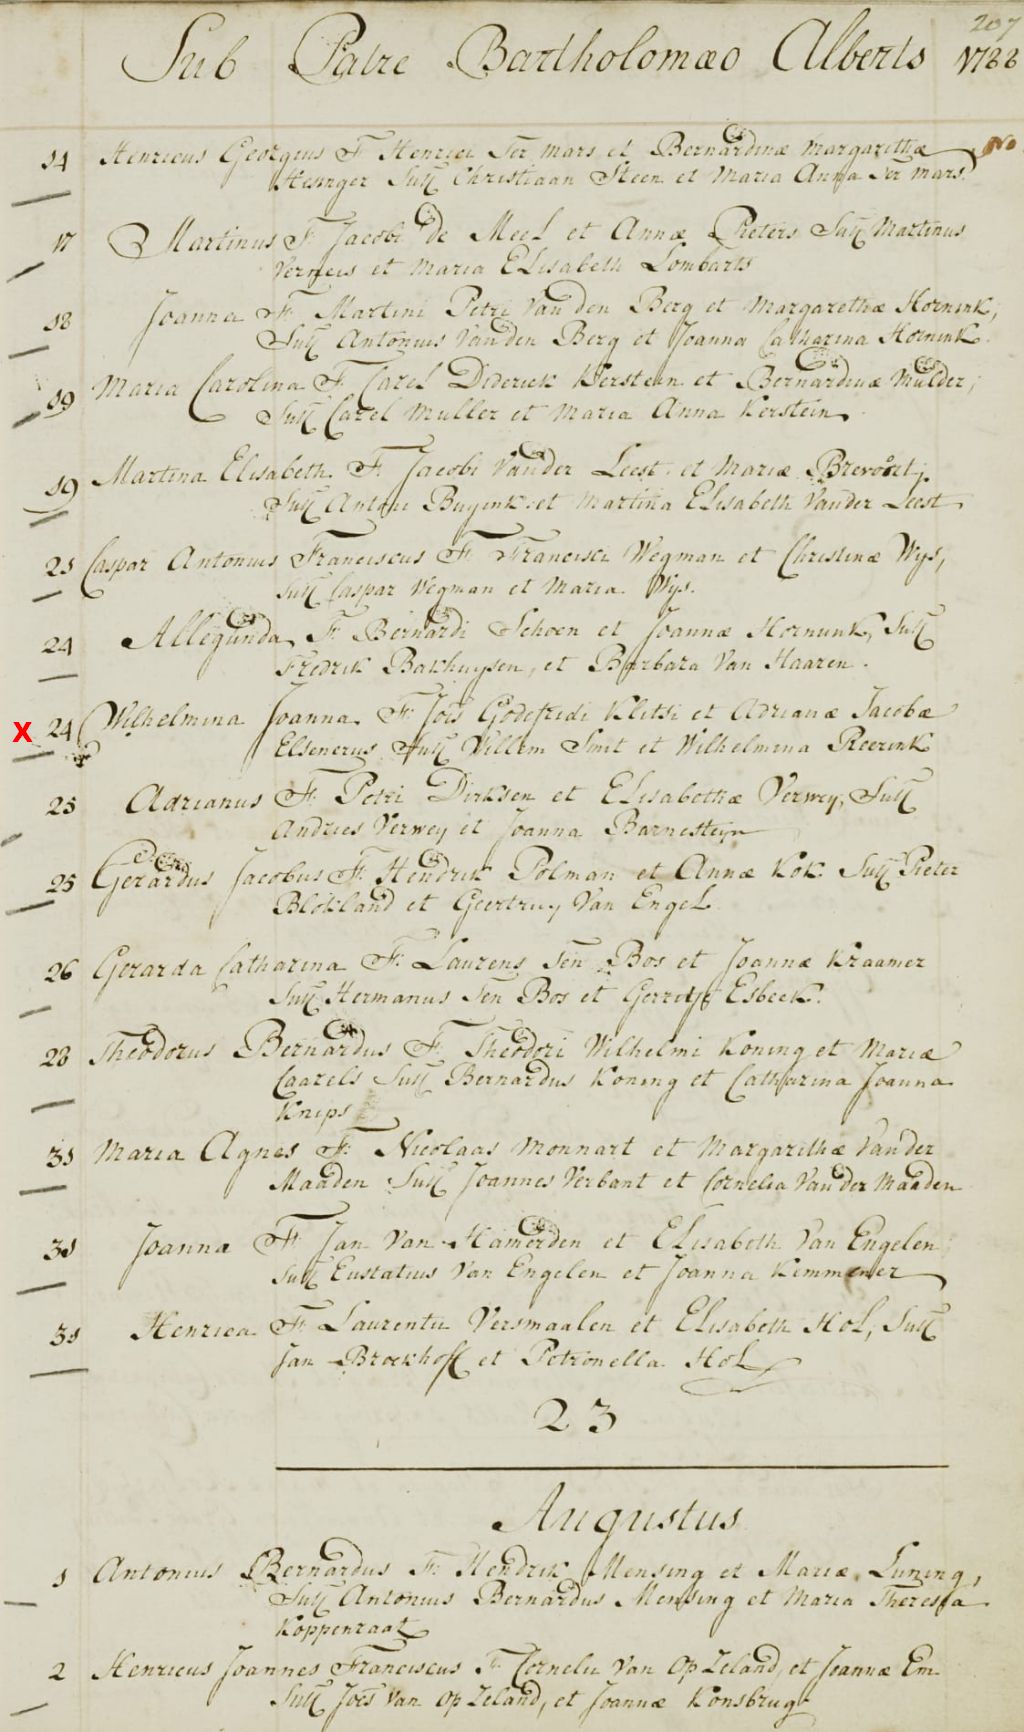 207
Sub Patre Bartholomæo Alberts 1788
14 Henricus Georgius F. Henrici Ter mars et Bernardinæ Margarithæ No
Hesinger Susc Christiaan Steen et Maria Anna Ter mars.
17 Martinus F. Jacobi de Meel et Annæ Pieters Susc Martinus
Verheis et Maria Elisabeth Lombarts
18 Joanna F. Martini Petri Van den Berg et Margarethæ Hornink,
Susc Antonius Van den Berg et Joanna Catharina Hornink.
19 Maria Carolina F. Carel Diderick Kerstein et Bernardinæ Mulder;
Susc Carel Muller et Maria Anna Kerstein.
19 Martina Elisabeth F. Jacobi Van der Leest et Mariæ Brevoort;
Susc Antoni Buyink et Martina Elisabeth Van der Leest
21 Caspar Antonius Franciscus F. Francisci Wegman et Christinæ Wys,
Susc Caspar Wegman et Maria Wys.
24 Allegunda F. Bernardi Schoen et Joannæ Hornunk, Susc
Fredrik Bakhuysen, et Barbara Van Haaren.
X 24 Wilhelmina Joanna F. Jois Godefridi Klitsi et Adrianæ Jacobæ
Elsenerus Susc Willem Smit et Wilhelmina Reerink
25 Adrianus F. Petri Dirksen et Elisabethæ Verwey, Susc
Andries Verwey et Joanna Barnesteyn
25 Gerardus Jacobus F. Hendrik Polman et Annæ Kok Susc Pieter
Blokland et Geertruy Van Engel
26 Gerarda Catharina F. Laurens Ten Bos et Joannæ Kraamer
Susc Hermanus Ten Bos et Gerritje Esbeek.
28 Theodorus Bernardus F. Theodori Wilhelmi Koning et Mariæ
Caarels Susc Bernardus Koning et Catharina Joanna
Knips
31 Maria Agnes F. Nicolaas Monnart et Margarithæ Van der
Maaden Susc Joannes Verbant et Cornelia Van der Maaden
31 Joanna F. Jan Van Hamerden et Elisabeth Van Engelen
Susc Eustatius Van Engelen et Joanna Kemmener
31 Henrica F. Laurentii Versmaalen et Elisabeth Hol, Susc
Jan Brockhoff et Petronella Hol
23
Augustus
1 Antonius Bernardus F. Hendrik Mensing et Mariæ Luning,
Susc Antonius Bernardus Mensing et Maria Theresia
Koppenraat
2 Henricus Joannes Franciscus F. Cornelii Van Op Zeland, et Joannæ Em
Susc Jois Van Op Zeland, et Joannæ Konsbrug